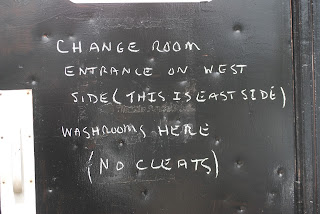 CHANGE ROOM
ENTRANCE ON WEST
SIDE (THIS IS EAST SIDE)
WASHROOMS HERE
(NO CLEATS)